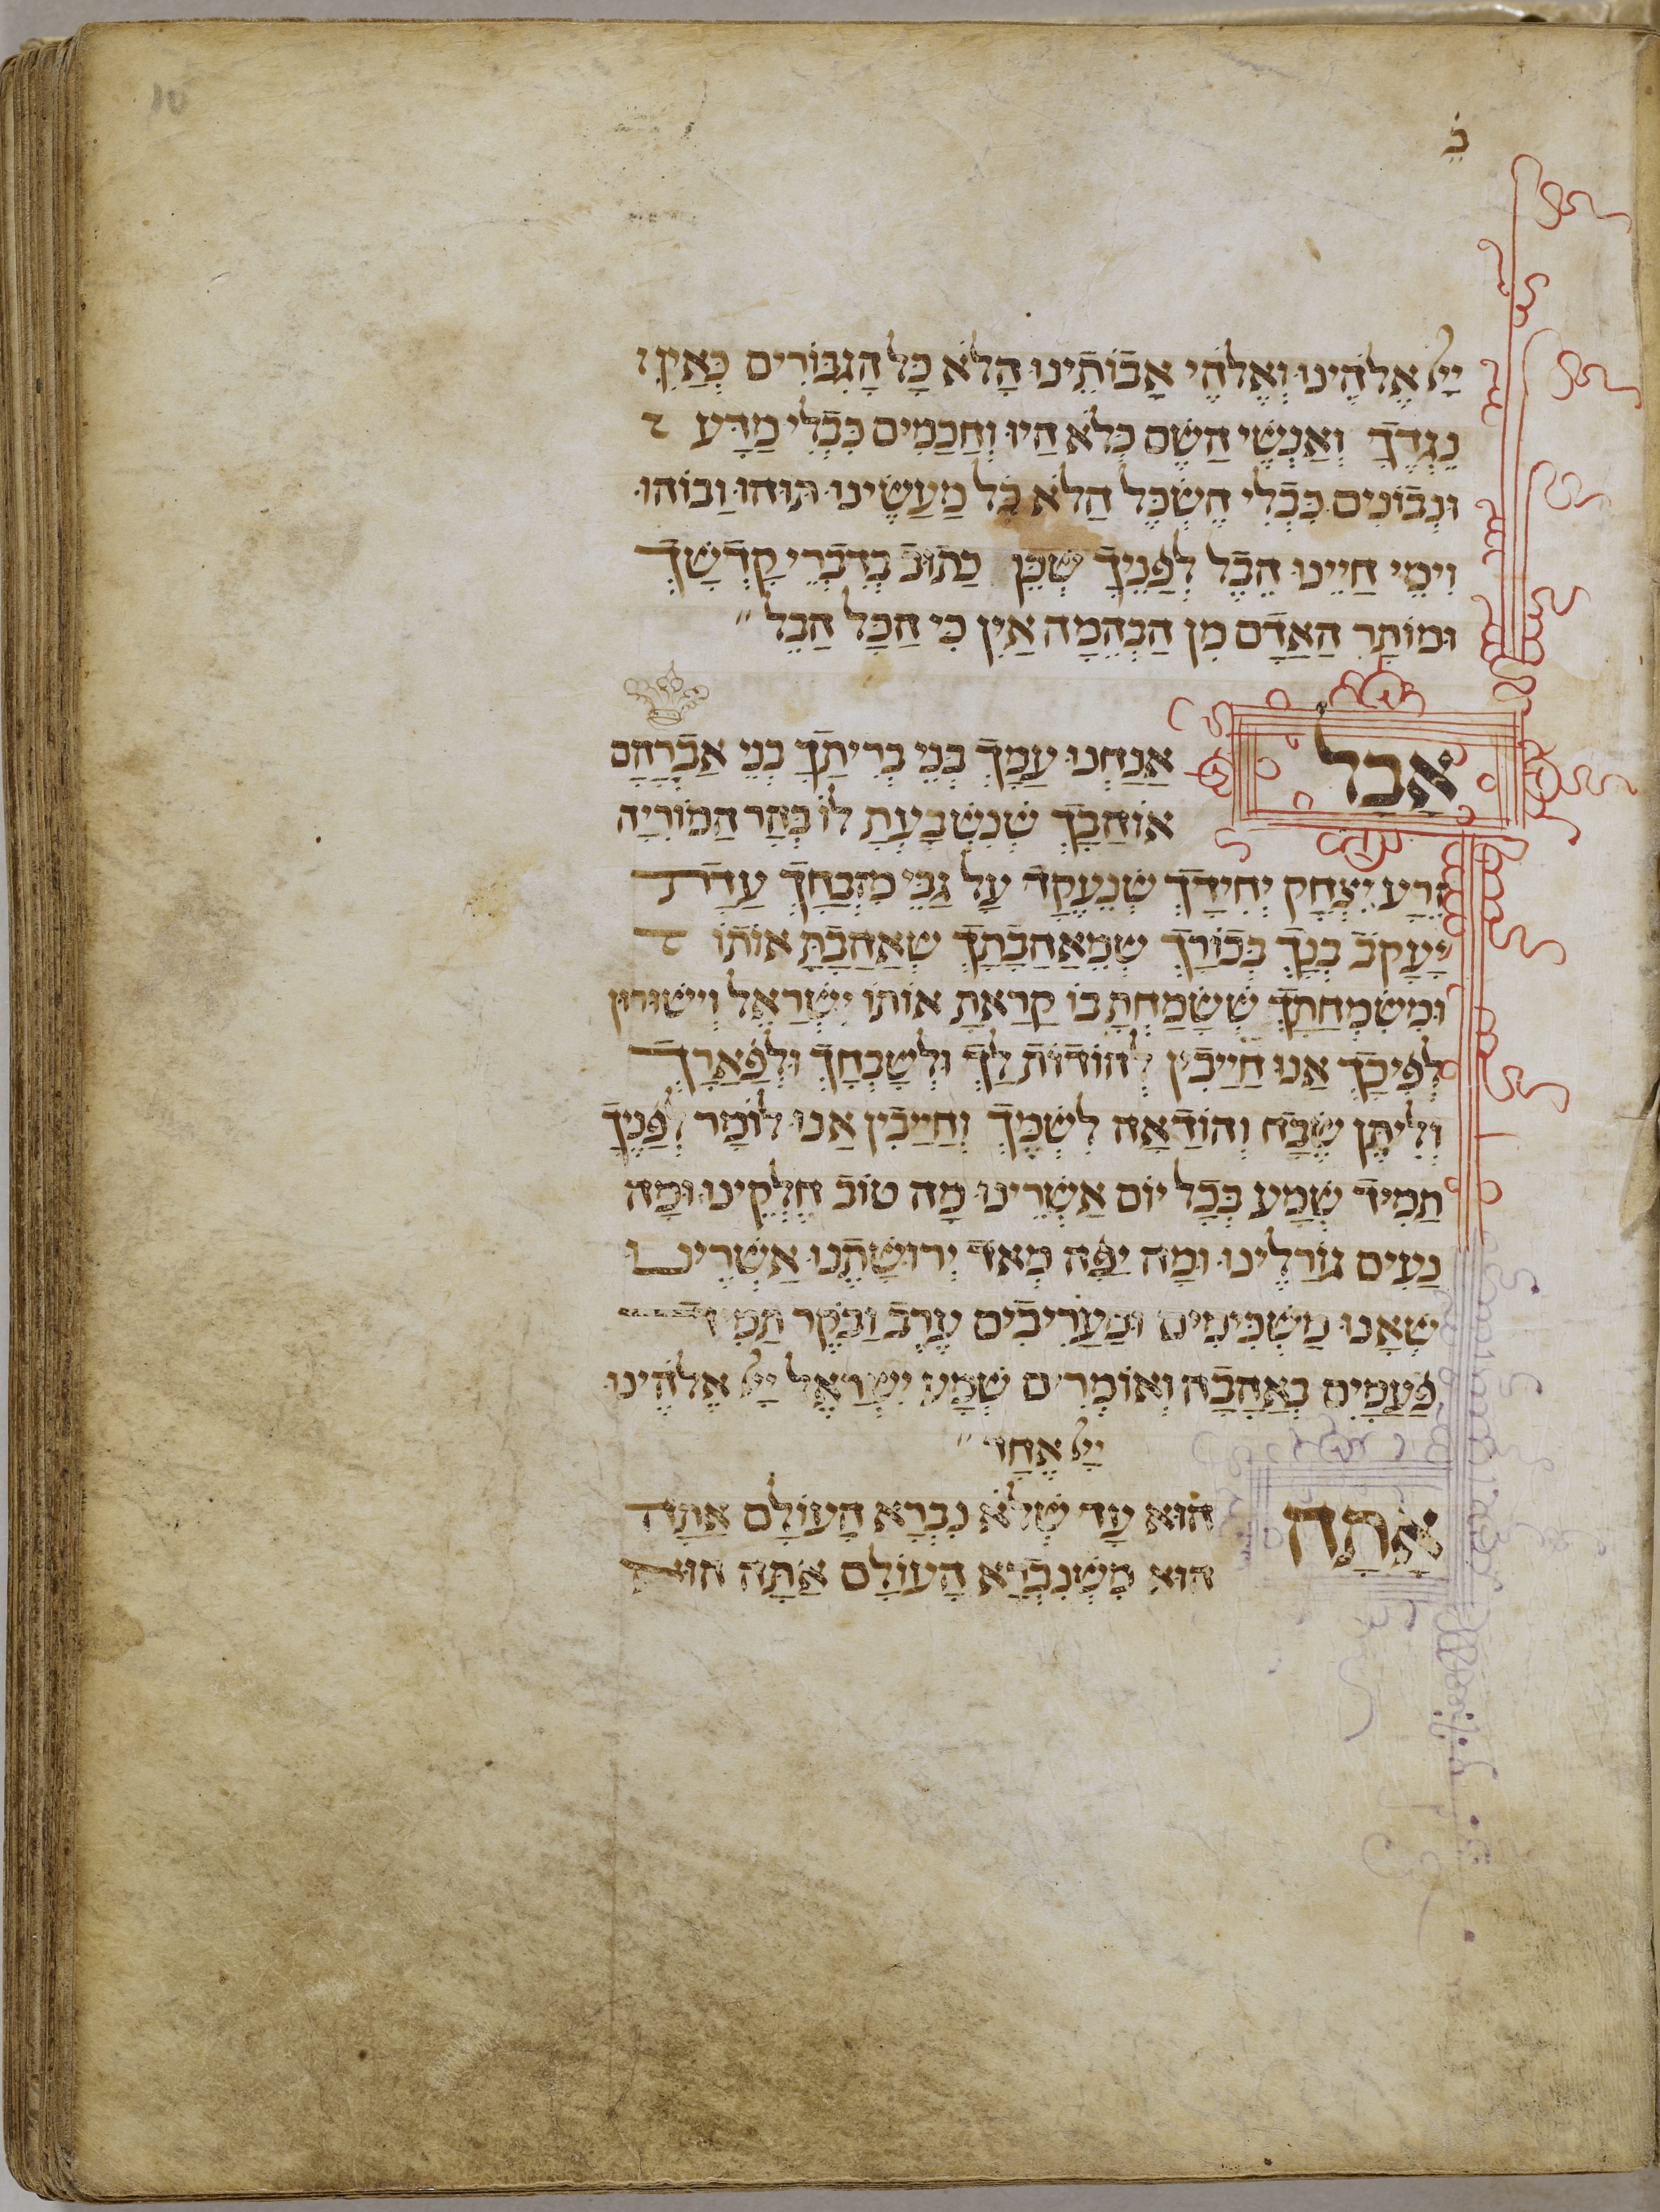 10
בׄ
יְיָ אֱלֹהֵינוּ וְאֱלֹהֵי אֲבוֹתֵינוּ הֲלֹא כָל הַגִבּוֹרִים כְּאַיִן
נֶגְדֶךָ וְאַנְשֵׁי הַשֵׁם כְּלֹא הָיוּ וַחֲכָמִים כִּבְלִי מַדָע
וּנְבוֹנִים כִּבְלִי הֶשְׂכֵּל הֲלֹא כָל מַעֲשֵׂינוּ תּוֹהוּ וָבוֹהוּ
וִימֵי חַיֵינוּ הֶבֶל לְפָנֶיךָ שֶׁכֵּן כָּתוּב בְּדִבְרֵי קָדְשֶׁךָ
וּמוֹתַר הָאָדָם מִן הַבְּהֵמָה אַיִן כִּי הַכָּל הָבֶל
אֲבָל אֲנַחְנוּ עַמְךָ בְּנֵי בְרִיתֶךָ בְּנֵי אַבְרָהָם
אוֹהַבְךָ שֶׁנִשְׁבַּעְתָ לוֹ בְּהַר הַמוֹרִיָה
זֶרַע יִצְחָק יְחִידָךְ שֶׁנֶעֱקַד עַל גַבֵּי מִזְבְּחָךְ עֲדַת
יַעֲקֹב בִּנְךָ בְּכוֹרָךְ שֶׁמֵאַהֲבָתָךְ שֶׁאָהַבְתָּ אוֹתוֹ
וּמִשִׂמְחָתָךְ שֶׁשָׂמַחְתָּ בּוֹ קָרָאתָ אוֹתוֹ יִשְׂרָאֵל וְיְשׁוּרוּן
לְפִיכָךְ אָנוּ חַיָיבִין לְהוֹדוֹת לָךְ וּלְשַׁבְּחָךְ וּלְפָאֲרָךְ
וְלִיתֵּן שֶׁבַח וְהוֹדָאָה לִשְׁמֶךָ וְחַיָיבִין אָנוּ לוֹמַר לְפָנֶיךָ
תָמִיד שְׁמַע בְּכָל יוֹם אַשְׁרֵינוּ מַה טוֹב חֶלְקֵינוּ וּמַה
נָעִים גוֹרָלֵינוּ וּמַה יָפָה מְאֹד יְרוּשָׁתֵנוּ אַשְׁרֵינוּ
שֶׁאָנוּ מַשְׁכִּימִים וּמַעֲרִיבִים עֶרֶב וָבֹקֶר תָמִיד
פַּעֲמַיִם בְּאַהֲבָה וְאוֹמְרִים שְׁמַע יִשְׂרָאֵל יְיָ אֱלֹהֵינוּ
יְיָ אֶחָד
אַתָּה הוּא עַד שֶׁלֹא נִבְרָא הָעוֹלָם אַתָּה
הוּא מִשֶׁנִבְרָא הָעוֹלָם אַתָּה הוּא